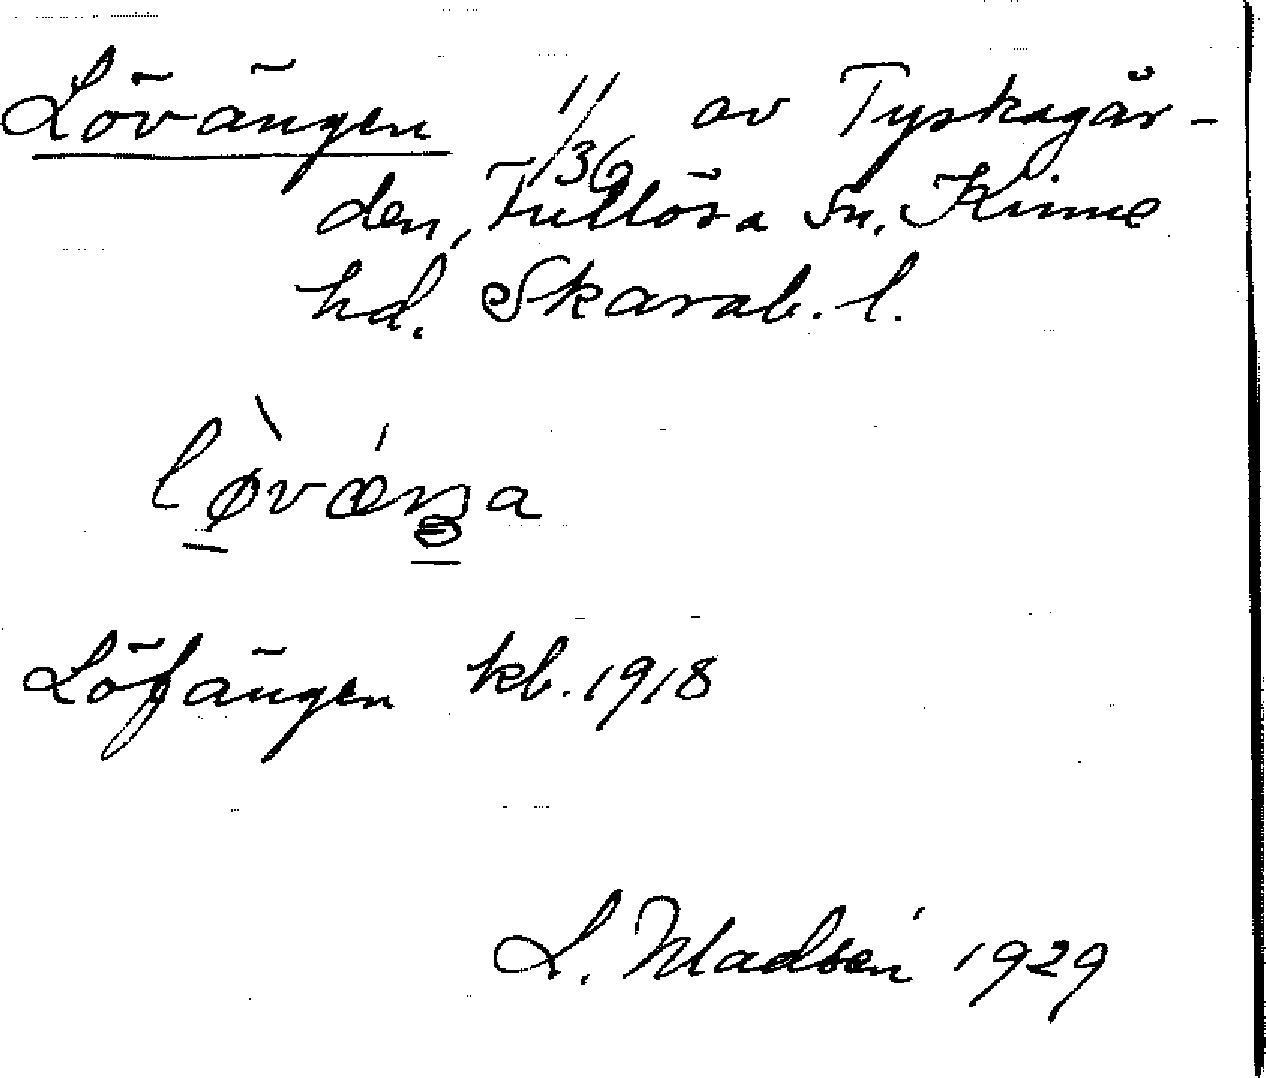 Lövängen 11/36 av Tyskagår-
den, Fullösa Sn. Kinne
hd. Skarab. l.
Löfängen kb. 1918
L. Madsén 1929